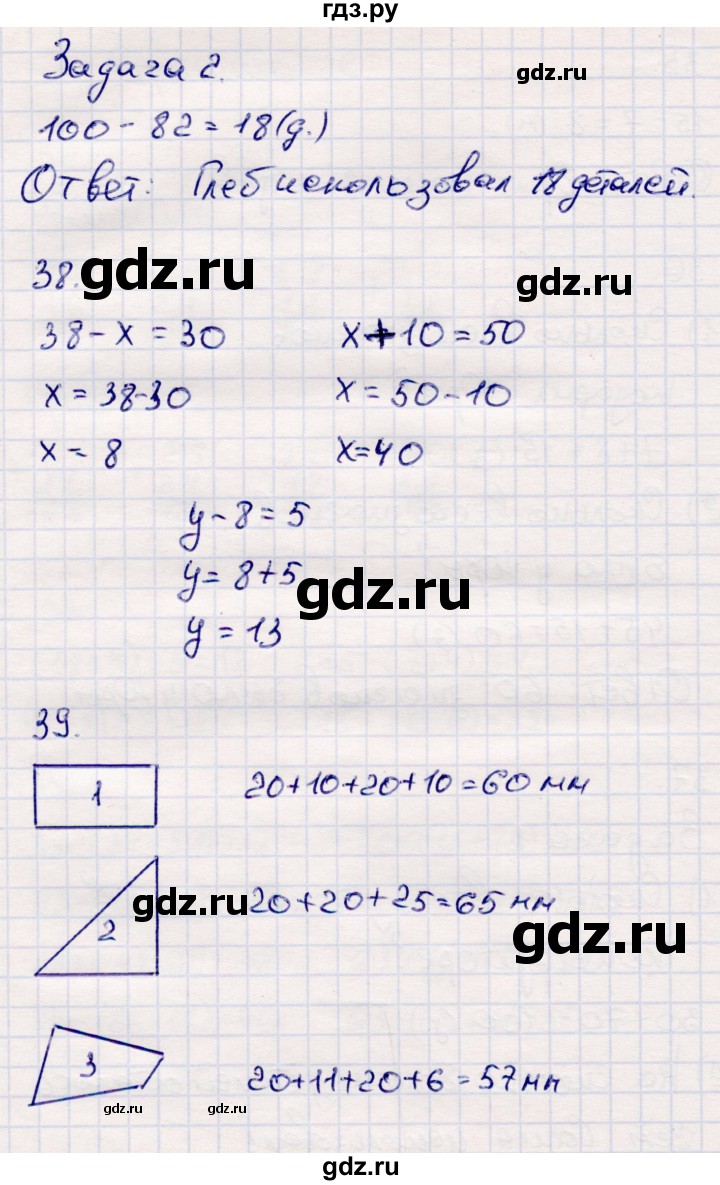 гдз.ру
Задача 2.
gdz.ru
100 - 82 = 18 (д.)
Ответ: Глеб использовал 18 деталей.
38.
gdz.ru
gdz.ru
38 - x = 30
x + 10 = 50
x = 38-30
x = 50 - 10
x = 8
x = 40
y - 8 = 5
y = 8+5
gdz.ru
y = 13
39.
1
20+10+20+10=60 мм
gdz.ru
20+20+25=65 мм
2
gdz.ru
3
20+11+20+6=57 мм
gdz.ru
gdz.ru
gdz.ru